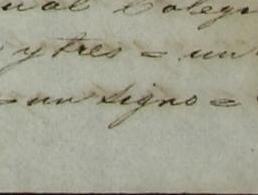 ual Coleg
y tres = un
= un signo =